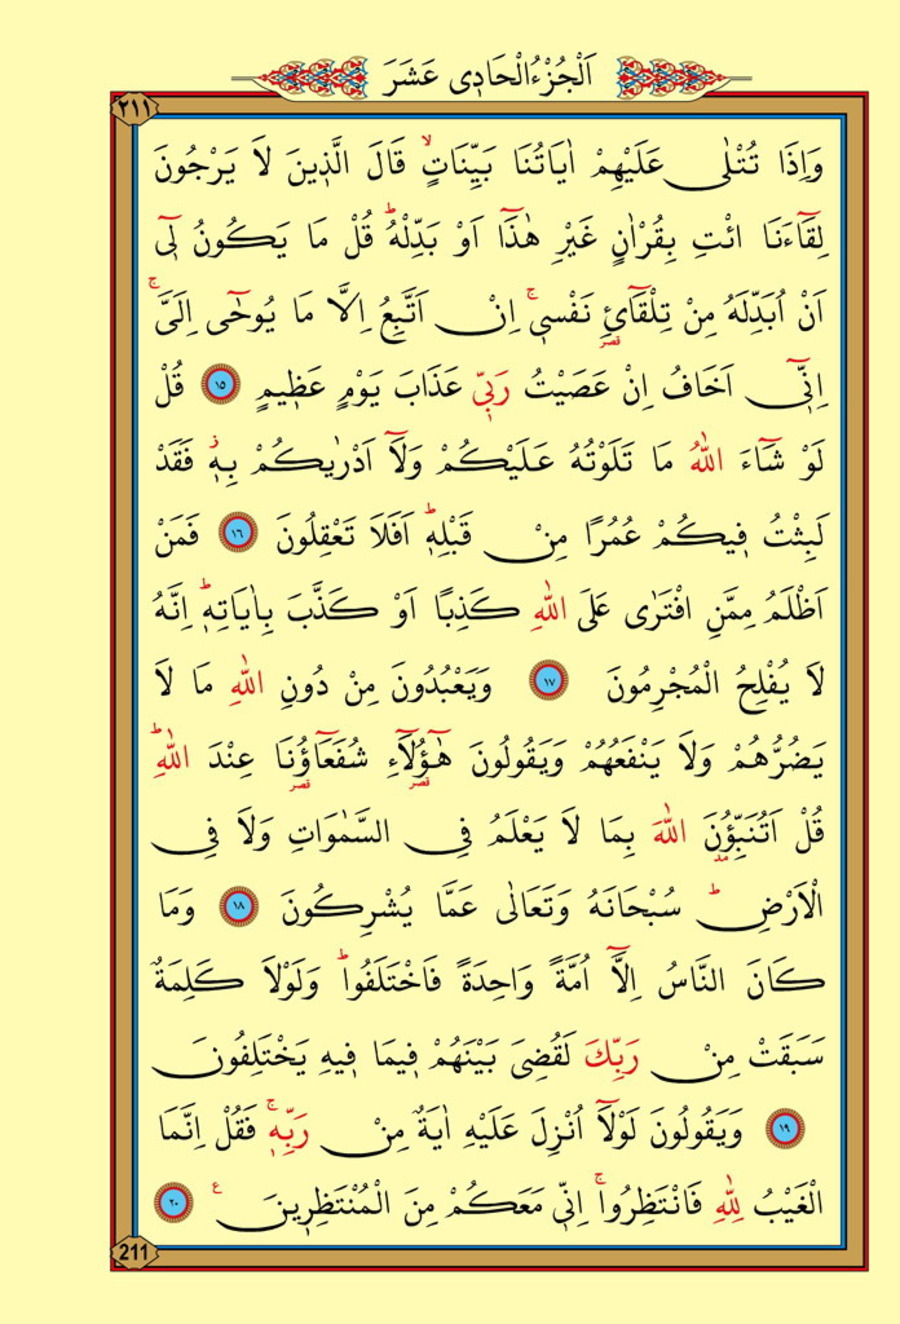 اَلْجُزْءُ الْحَادِى عَشَرَ
٢١١
وَاِذَا تُتْلٰى عَلَيْهِمْ اٰيَاتُنَا بَيِّنَاتٍۙ قَالَ الَّذ۪ينَ لَا يَرْجُونَ
لِقَٓاءَنَا ائْتِ بِقُرْاٰنٍ غَيْرِ هٰذَٓا اَوْ بَدِّلْهُۜ قُلْ مَا يَكُونُ ل۪ٓى
اَنْ اُبَدِّلَهُ مِنْ تِلْقَٓائِ۬ نَفْس۪ىۚ اِنْ اَتَّبِعُ اِلَّا مَا يُوحٰٓى اِلَىَّۚ
قصر
اِنّ۪ٓى اَخَافُ اِنْ عَصَيْتُ رَبّ۪ى عَذَابَ يَوْمٍ عَظ۪يمٍ ١٥ قُلْ
لَوْ شَٓاءَ اللّٰهُ مَا تَلَوْتُهُ عَلَيْكُمْ وَلَٓا اَدْرٰيكُمْ بِه۪ۘ فَقَدْ
لَبِثْتُ ف۪يكُمْ عُمُرًا مِنْ قَبْلِه۪ۜ اَفَلَا تَعْقِلُونَ ١٦ فَمَنْ
اَظْلَمُ مِمَّنِ افْتَرٰى عَلَى اللّٰهِ كَذِبًا اَوْ كَذَّبَ بِاٰيَاتِه۪ۜ اِنَّهُ
لَا يُفْلِحُ الْمُجْرِمُونَ ١٧ وَيَعْبُدُونَ مِنْ دُونِ اللّٰهِ مَا لَا
يَضُرُّهُمْ وَلَا يَنْفَعُهُمْ وَيَقُولُونَ هٰٓؤُ۬لَٓاءِ شُفَعَٓاؤُ۬نَا عِنْدَ اللّٰهِۜ
قصر قصر
قُلْ اَتُنَبِّؤُ۫نَ اللّٰهَ بِمَا لَا يَعْلَمُ فِى السَّمٰوَاتِ وَلَا فِى
مد
الْاَرْضِۜ سُبْحَانَهُ وَتَعَالٰى عَمَّا يُشْرِكُونَ ١٨ وَمَا
كَانَ النَّاسُ اِلَّٓا اُمَّةً وَاحِدَةً فَاخْتَلَفُواۜ وَلَوْلَا كَلِمَةٌ
سَبَقَتْ مِنْ رَبِّكَ لَقُضِىَ بَيْنَهُمْ ف۪يمَا ف۪يهِ يَخْتَلِفُونَ
١٩ وَيَقُولُونَ لَوْلَٓا اُنْزِلَ عَلَيْهِ اٰيَةٌ مِنْ رَبِّه۪ۚ فَقُلْ اِنَّمَا
الْغَيْبُ لِلّٰهِ فَانْتَظِرُواۚ اِنّ۪ى مَعَكُمْ مِنَ الْمُنْتَظِر۪ينَ ع ٢٠
211